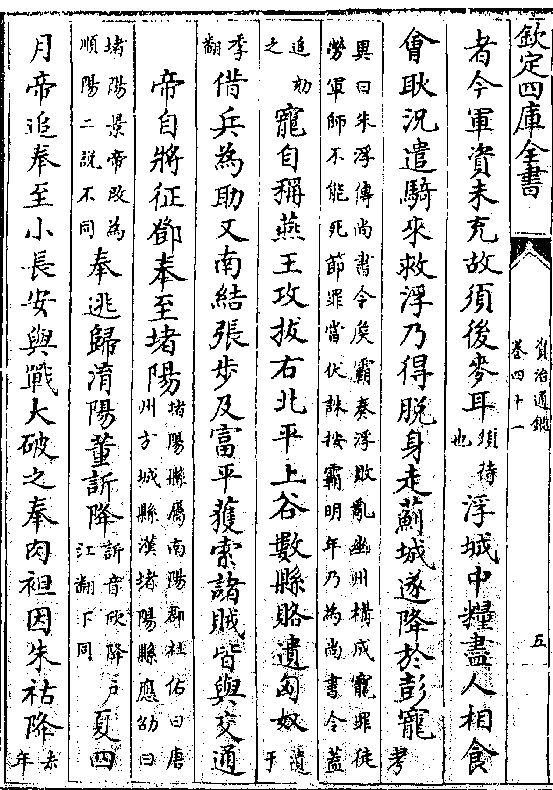 欽定四庫全書
資治通鑑
卷四十一
五
者今軍資未充故須後麥耳須待也浮城中糧盡人相食
會耿況遣騎來救浮乃得脱身走薊城遂降於彭寵考
異曰朱浮傳尚書令矦霸奏浮敗亂幽州構成寵罪徒
勞軍師不能死節罪當伏誅按霸明年乃為尚書令蓋
追劾之寵自稱燕王攻拔右北平上谷數縣賂遺匈奴遺于
季翻借兵為助又南結張步及富平獲索諸賊皆與交通
帝自將征鄧奉至堵陽堵陽縣屬南陽郡杜佑曰唐
州方城縣漢堵陽縣應劭曰
堵陽景帝改為順陽二說不同奉逃歸淯陽董訢降訢音欣降户江翻下同夏四
月帝追奉至小長安與戰大破之奉肉袒因朱祜降去年